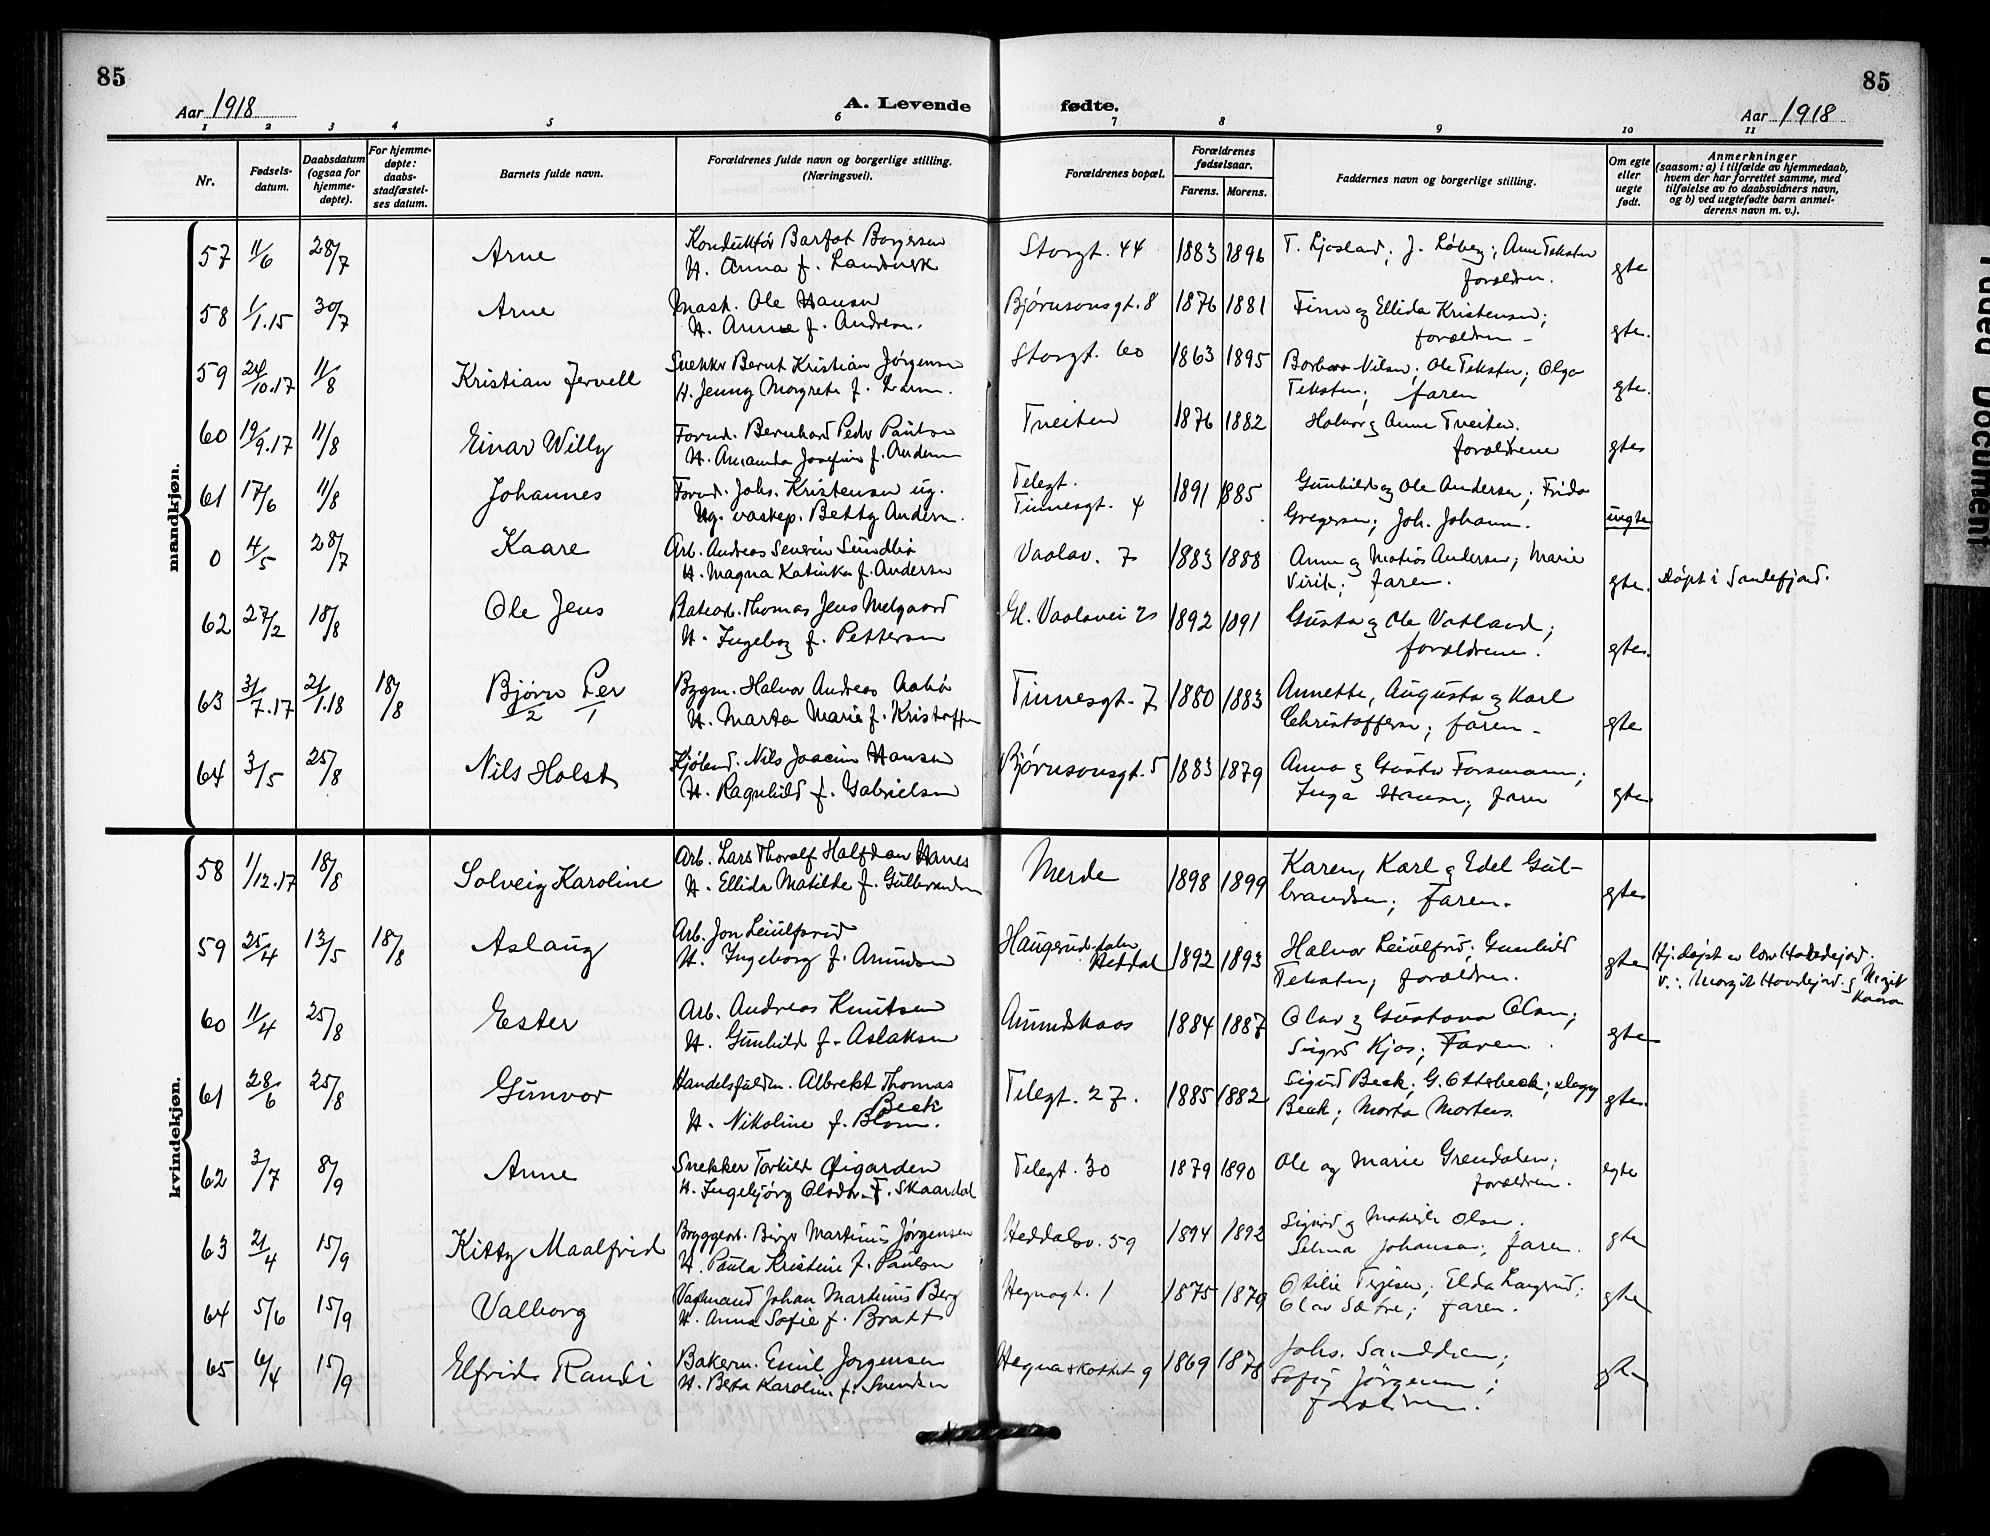 85
85
Aar 1918
A. Levende fødte.
Aar 1918
1 2 3 4 5 6 7 8 9 10 11
Nr.
Fødsels-
datum.
Daabsdatum
(ogsaa for
hjemme-
døpte).
For hjemme-
døpte:
daabs-
stadfæstel-
ses datum.
Barnets fulde navn.
Forældrenes fulde navn og borgerlige stilling.
(Næringsvei).
Forældrenes bopæl.
Forældrenes
fødselsaar.
Farens. Morens.
Faddernes navn og borgerlige stilling.
Om egte
eller
uegte
født.
Anmerkninger
(saasom: a) i tilfælde av hjemmedaab,
hvem der har forrettet samme, med
tilføielse av to daabsvidners navn,
og b) ved uegtefødte barn anmel-
derens navn m. v.).
mandkjøn.
57 11/6 28/7 Arne Konduktør Barfot Borgersen Storgt. 44 1883 1896 T. Ljosland; J. Løberg; Anne Teksten
H. Anna f. Landsverk forældren. gte
58 1/1.15 30/7 Arne Mask. Ole Hansen Bjørnsonsgt. 8 1876 1881 Finn og Ellida Kristensen;
H. Anna f. Andersen. forældren gte.
59 24/10.17 11/8 Kristian Jervell Snekker Bernt Kristian Jørgensen Storgt. 60 1863 1895 Borborn Nilsen; Ole Teksten; Olga
H. Jenny Margrete f. Teksten; faren gte.
60 19/9.17 11/8 Einar Willy Formd. Bernhard Peder Paulsen Tveiten 1876 1882 Halvor og Anne Tveiten.
H. Amanda Josefine f. Andersen forældrene gtes
61 17/6 11/8 Johannes Formd. Johs. Kristensen ug. Telegt. 1891 1885 Gunhild og Ole Andersen; Frida
Ug. vaskep. Betty Andersen. Tinnesgt. 4 Gregersen; Joh. Johansen. uegte
0 4/5 28/7 Kaare Arb. Andreas Severin Sundbø Vaalav. 7 1883 1888 Anne og Matias Andersen; Marie
H. Magna Katinka f. Andersen faren. gte. døpt i Sandefjord.
62 27/2 18/8 Ole Jens Thomas Jens Melgaard Gl. Vaalavei 1892 1891 Gusta og Ole Vatland;
H. Ingeborg f. Pettersen forældrene. gtes.
63 31/7.17 21/1.18 18/8 Bjørn Per Bygm. Halvor Andreas Tinnesgt. 7 1880 1883 Annette, Augusta og Karl
2 1 H. Marta Marie f. Kristoffersen Christoffersen; faren gte
64 3/5 25/8 Nils Holst Kjøbmd. Nils Joacim Hansen Bjørnsonsgt. 5 1883 1879 Anna og Gustav Forsmann;
H. Ragnhild f. Gabrielsen Inga Hansen; faren gtes
kvindekjøn.
58 1/12.17 18/8 Solveig Karoline Arb. Lars Thoralf Halfdan Hanes Merde 1898 1899 Karen, Karl og Edel Gul-
H. Ellida Matilde f. Gulbrandsen brandsen; Faren. gtes
59 25/4 13/5 18/8 Aslaug Arb. Jon Leiulfsrud Haugerudsdalen 1892 1893 Halvor Leiulfsrud; Gunhild
H. Ingeborg f. Amundsen Heddal Teksten; forældren. gten
60 11/4 25/8 Ester Arb. Andreas Knutsen Amundskaas 1884 1887 Olav og Gustava Olsen;
H. Gunhild f. Aslaksen Sigrid Kjos; Faren. gten
61 28/6 25/8 Gunvor Handelsfuldm. Albrekt Thomas Telegt. 27. 1885 1882 Sigurd Beck; G. Ottobeck; Dagny
Beck
H. Nikoline f. Blom. Beck; Marta Mortens. gtes.
62 3/7 8/9 Anne Snekker Torkild Øigarden Telegt. 30 1879 1890 Ole og Marie Grendalen;
H. Ingebjørg Olsdtr. F. Skaardal forældren. egte
63 21/4 15/9 Kitty Maalfrid Bryggearb. Birger Martinus Jørgensen Heddalsv. 59 1894 1892 Sigurd og Matilde Olsen.
H. Paula Kristine f. Paulsen Selma Johansen; faren. gten
64 5/6 15/9 Valborg Vagtmand Johan Martinus Berg Hegnagt. 1 1875 1879 Otilie Terjesen; Elda Langrud;
H. Anna Sofie f. Bratt Olav Sætre; faren. gten
65 6/4 15/9 Elfrida Randi Bakerm. Emil Jørgensen 9 1869 1878 Johs. Sanddden;
H. Beta Karoline f. Svendsen Sofie Jörgensen;
forældren.